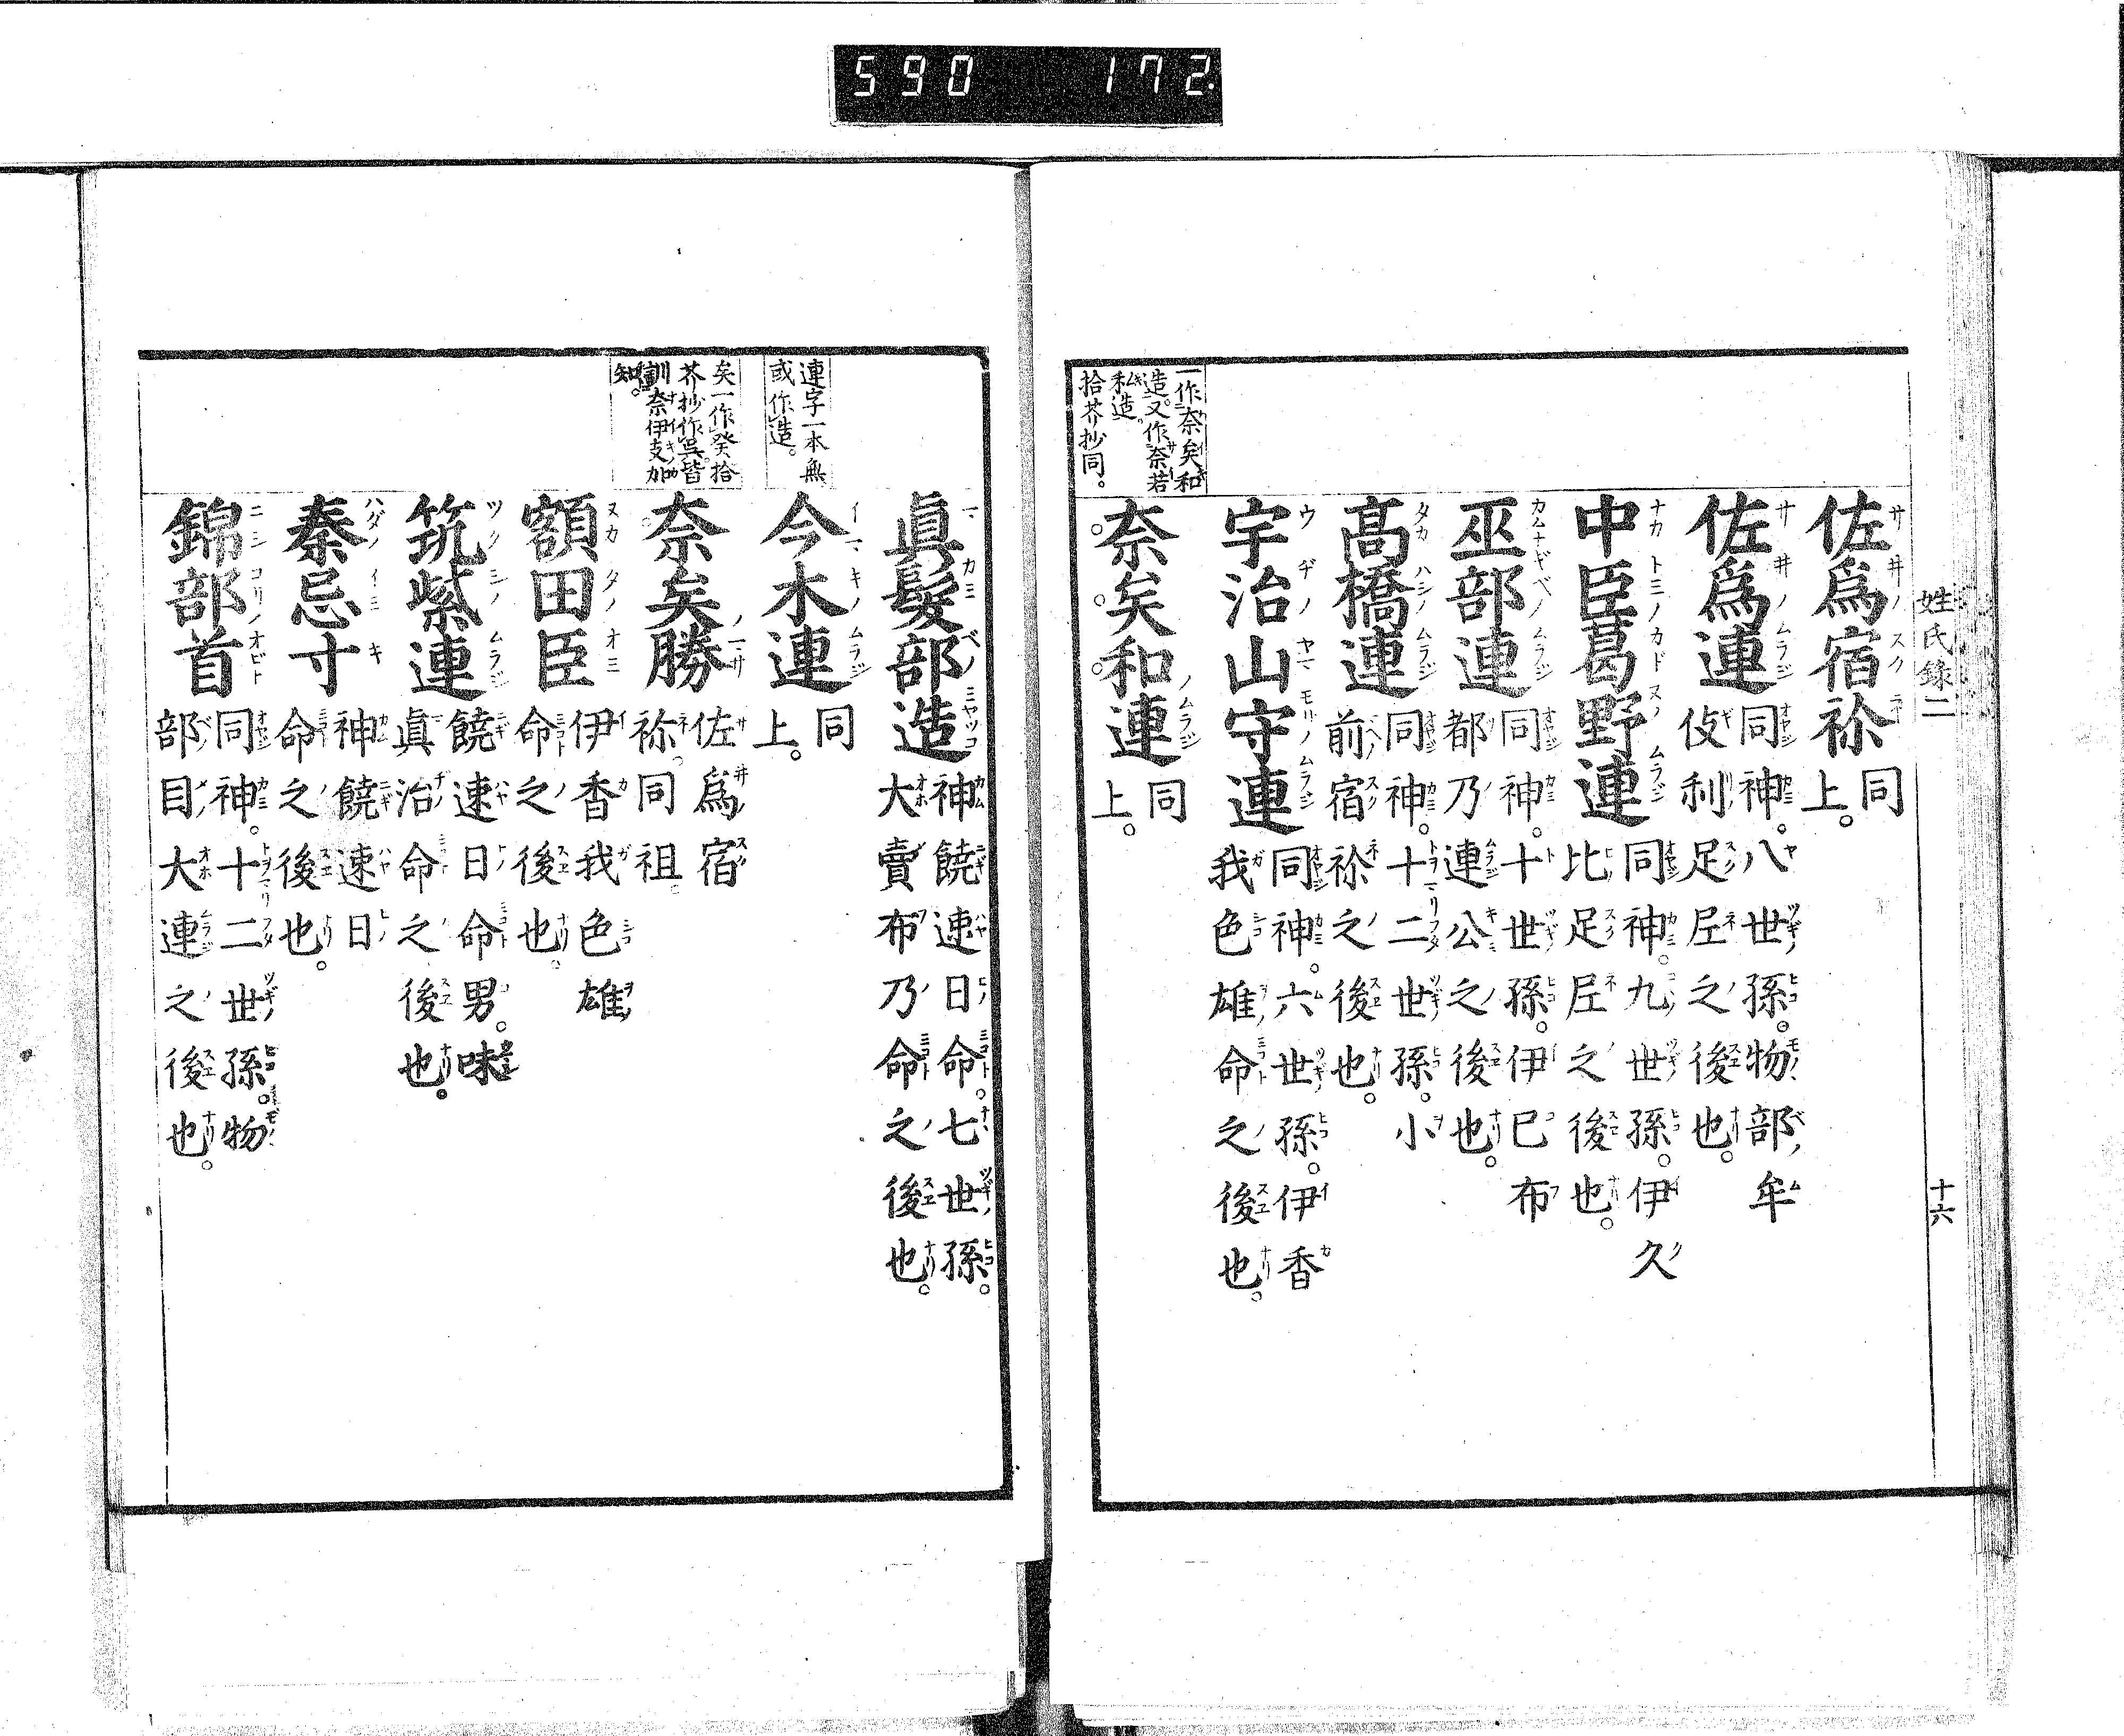 590 172.
姓氏錄二
十六
佐爲宿祢同上。
佐爲連同神。八世孫。物部牟
伎利足尼之後也。
中臣葛野連同神。九世孫。伊久
比足尼之後也。
巫部連同神。十世孫。伊己布
都乃連公之後也。
髙橋連同神。十二世孫。小
前宿祢之後也。
宇治山守連同神。六世孫。伊香
我色雄命之後也。
一作奈矣和
造。又作奈若
私造。
拾芥抄同。
奈矣和連同上。
眞髮部造神饒速日命。七世孫。
大賣布乃命之後也。
連字一本無
或作造。
今木連同上。
矣一作癸拾
芥抄作呉。皆
訓奈伊支加
知。
奈矣勝佐爲宿
祢。同祖。
額田臣伊香我色雄
命之後也。
筑紫連饒速日命男。味
眞治命之後也。
秦忌寸神饒速日
命之後也。
錦部首同神。十二世孫。物
部目大連之後也。